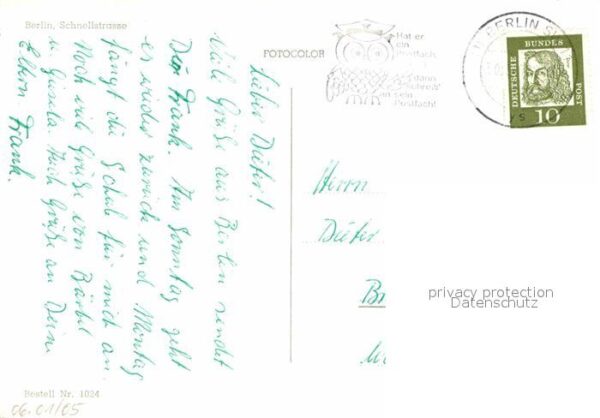 Berlin, Schnellstrasse
FOTOCOLOR
Hat er
ein
Postfach,
dann
schreib'
an sein
Postfach!
BERLIN
DEUTSCHE BUNDES POST
10
Lieber Dieter!
Viele Grüße aus Berlin sendet
Dir Frank. Am Sonntag geht
es wieder zurück und Montag
fängt die Schule für mich an.
Noch viele Grüße von Bärbel
u. Gisela. Auch Grüße an Deine
Eltern Frank.
Herrn
Dieter
privacy protection
Datenschutz
Bestell Nr. 1024
06.01/05